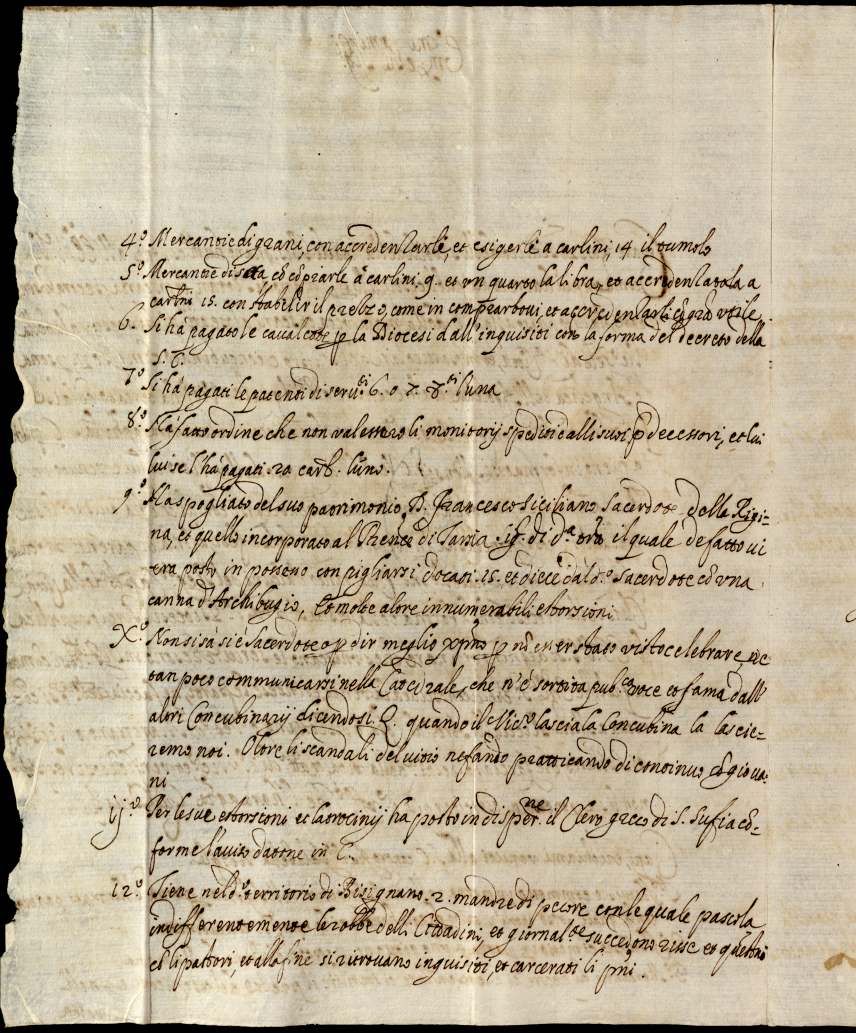 4.º Mercantie di grani, con accredentarle, et esigerle a carlini, 14 il tumolo
5.º Mercantie di seta, cõ cõprarle à carlini, 9. et un quarto la libra, et accredentatola a
carlini 15. con stabilir il prezzo, come in comprarboui, et accredentarli
6. Si hà pagato le cavalcate p la Diocesi d'all'inquisiti con la forma del decreto della
S. C.
7.º Si hà pagati le patenti di serv.ti 6. o 7. d.ti l'una
8.º Hà fatto ordine che non valessero li monitorij spediti dalli suoi p̃decessori, et lui
lui se l'hà pagati .20 carl. l'uno.
9.º Ha spogliato del suo patrimonio, D. Francesco Siciliano Sacerdote delle Rigi=
na, et quello incorporato al Prencẽ di Tarsia sig. di d.ª trã il quale de fatto vi
era posto in possesso con pigliarsi docati .15. et diece dal d.º sacerdote cõ una
canna d'Archibugio, et molte altre innumerabili estorsioni
X.º Non si sà si è Sacerdote o p dir meglio xp̃ino p nõ esser stato visto celebrare, ne
tan poco communicarsi nella Catedrale, che n'è sortita pub.ca voce et fama dall'
altri Concubinarij dicendosi. Q. quando il Vic.º lascia la Concubina la lascie=
remo noi. Oltre li scandali del vitio nefando pratticando di continuo cõ giova=
ni
11.º Per le sue estorsioni et latrocinij ha posto in disper.ne il Clero greco di S. Sufia cõ=
forme l'aviso datone in C.
12.º Tiene nel d.º territorio di Bisignano .2. mandre di pecore con le quale pascola
indifferentemente le robbe delli Cittadini, et giornal.te succedono risse et questioni
cõ li pastori, et alla fine si ritrovano inquisiti, et carcerati li p̃ni.